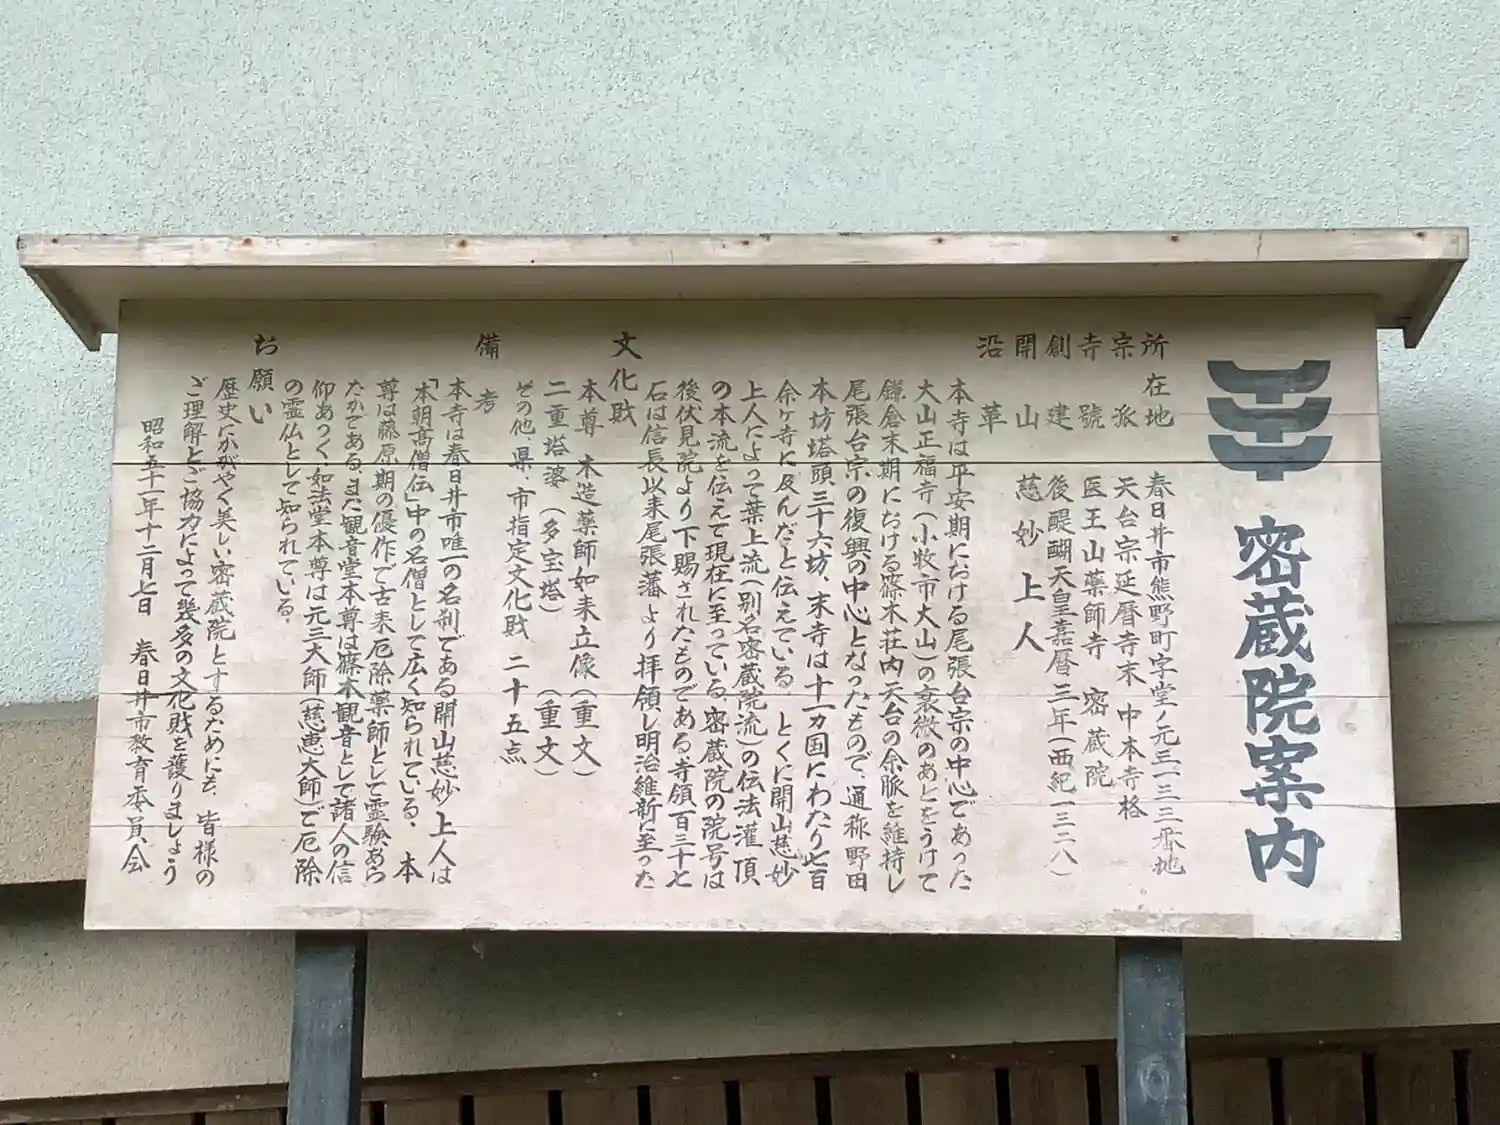 密蔵院案内
所在地 春日井市熊野町字堂ノ元三一三三番地
宗派 天台宗延暦寺末 中本寺格
寺號 医王山薬師寺 密蔵院
創建 後醍醐天皇嘉暦三年(西紀一三二八)
開山 慈妙上人
沿革
本寺は平安期における尾張台宗の中心であった
大山正福寺(小牧市大山)の衰微のあとをうけて
鎌倉末期における篠木荘内天台の余脈を維持し
尾張台宗の復興の中心となったもので、通称野田
本坊塔頭三十六坊、末寺は十一カ国にわたり七百
余ヶ寺に及んだと伝えている。とくに開山慈妙
上人によって葉上流(別名密蔵院流)の伝法灌頂
の本流を伝えて現在に至っている。密蔵院の院号は
後伏見院より下賜されたものである寺領百三十七
石は信長以来尾張藩より拝領し明治維新に至った
文化財
本尊 木造薬師如来立像(重文)
二重塔婆(多宝塔) (重文)
その他、県、市指定文化財 二十五点
備考
本寺は春日井市唯一の名刹である開山慈妙上人は
「本朝高僧伝」中の名僧として広く知られている。本
尊は藤原期の優作で古来厄除薬師として霊験あら
たかである、また観音堂本尊は篠木観音として諸人の信
仰あつく、如法堂本尊は元三大師(慈恵大師)で厄除
の霊仏として知られている。
お願い
歴史にかがやく美しい密蔵院とするためにも、皆様の
ご理解とご協力によって幾多の文化財を護りましょう
昭和五十一年十二月七日 春日井市教育委員会